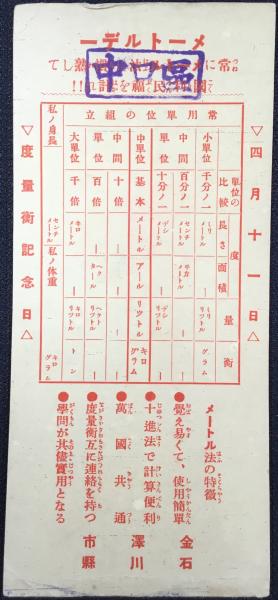 メートルデー
常にメートル法に習熟して
國利民福を計れ!!
中區
▽四月十一日▽
常用單位の組立
單位の比較 度 長さ 面積 量 衡
小單位 千分ノ一 ミリメートル ― ミリリツトル グラム
中間 百分ノ一 センチメートル サカメートル ― ―
單位 十分ノ一 デシメートル ― デシリツトル ―
中單位 基本 メートル アール リツトル キログラム
中間 十倍 ― ― ― ―
單位 百倍 ― ヘクタール ヘクトリツトル ―
大單位 千倍 キロメートル ― キロリツトル トン
私ノ身長 センチメートル 私ノ体重 キログラム
▽度量衡記念日▽
メートル法の特徴
●覺え易くて、使用簡單
●十進法で計算便利
●萬國共通
●度量衡互に連絡を持つ
●學問が其儘實用となる
金石
澤川
市縣